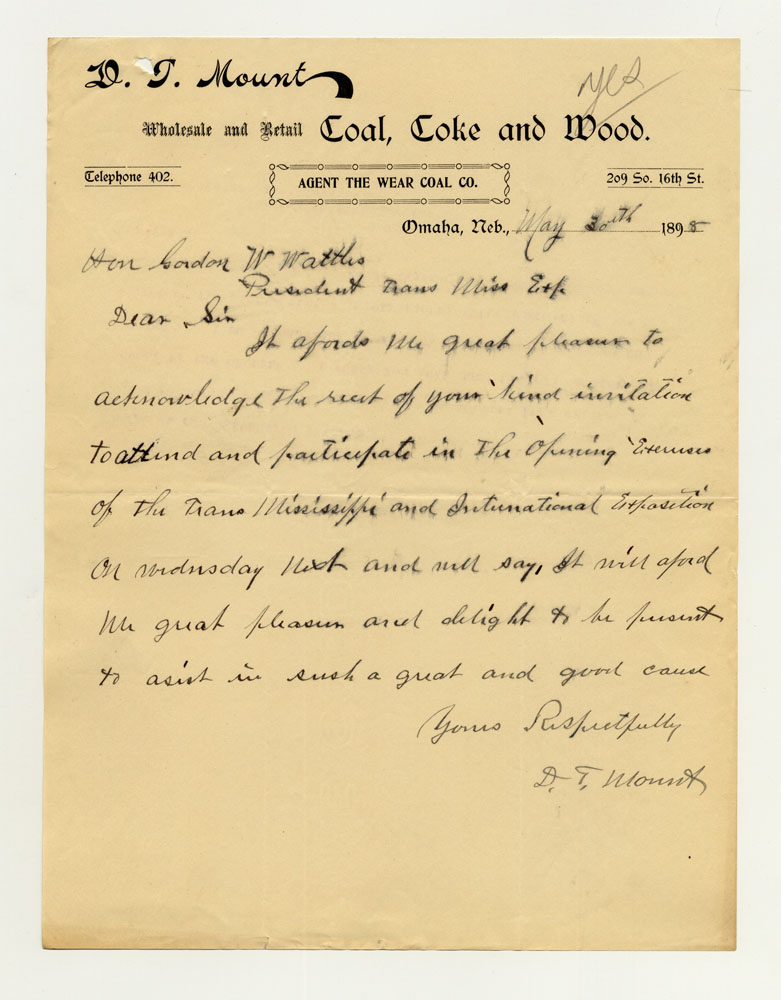 D. T. Mount
yes
Wholesale and Retail Coal, Coke and Wood.
Telephone 402.
AGENT THE WEAR COAL CO.
209 So. 16th St.
Omaha, Neb., May 30th 1898
Hon Gordon W Wattles
President Trans Miss Exp
Dear Sir
It afords me great pleasure to
acknowledge the recet of your kind invitation
to attend and participate in the Opening Exercises
of the Trans Mississippi and International Exposition
On wednesday Next and will say, It will aford
Me great pleasure and delight to be present
to asist in such a great and good cause
Yours Respectfully
D. T. Mount